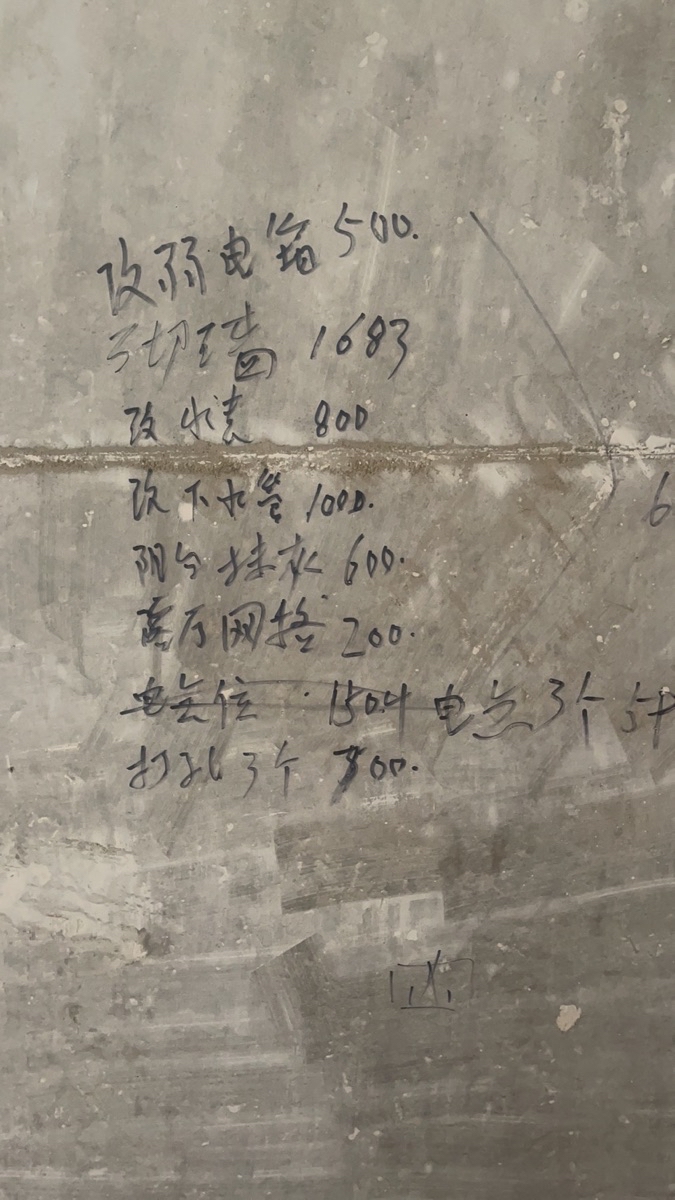 改弱电箱 500.
切墙 1683
改水表 800
改下水管 1000.
阳台抹灰 600.
网格 200.
电点位 1504 电点 3个
打孔 3个 300.
6